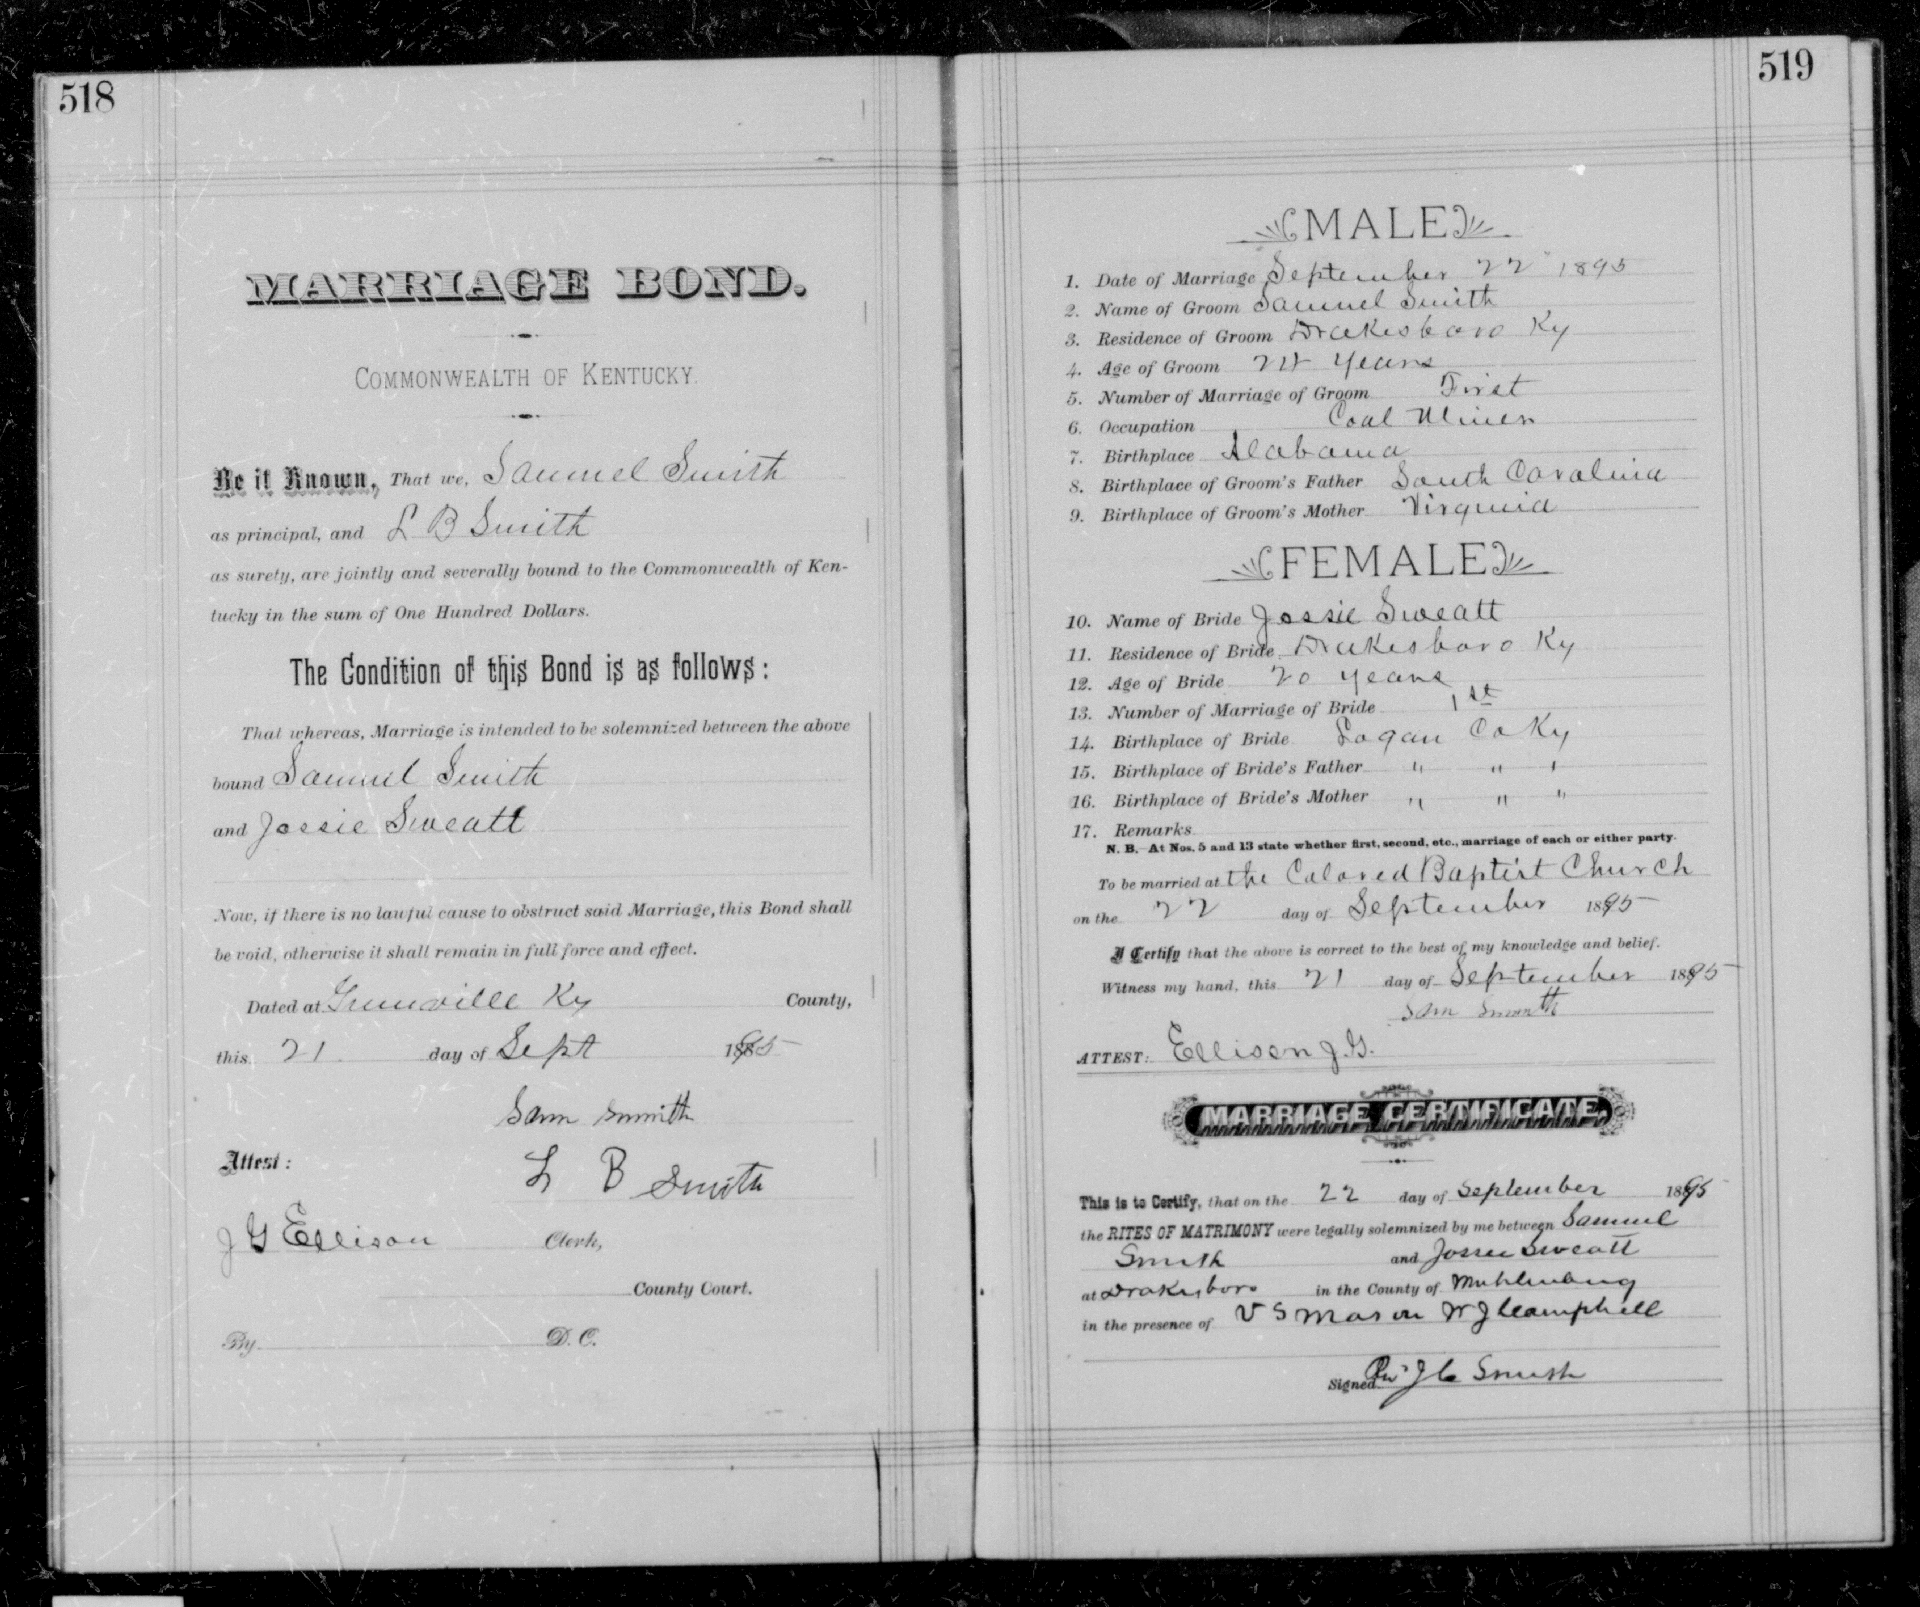 518
MARRIAGE BOND.
COMMONWEALTH OF KENTUCKY.
Be it Known, That we, Samuel Smith
as principal, and L B Smith
as surety, are jointly and severally bound to the Commonwealth of Ken-
tucky in the sum of One Hundred Dollars.
The Condition of this Bond is as follows:
That whereas, Marriage is intended to be solemnized between the above
bound Samuel Smith
and Jossie Sweatt
Now, if there is no lawful cause to obstruct said Marriage, this Bond shall
be void, otherwise it shall remain in full force and effect.
Dated at Greenville Ky County,
this 21 day of Sept 1895
Sam Smith
Attest: L B Smith
J G Ellison Clerk,
County Court.
By D. C.
519
MALE
1. Date of Marriage September 22" 1895
2. Name of Groom Samuel Smith
3. Residence of Groom Drakesboro Ky
4. Age of Groom 24 years
5. Number of Marriage of Groom First
6. Occupation Coal Miner
7. Birthplace Alabama
8. Birthplace of Groom's Father South Carolina
9. Birthplace of Groom's Mother Virginia
FEMALE
10. Name of Bride Jossie Sweatt
11. Residence of Bride Drakesboro Ky
12. Age of Bride 20 years
13. Number of Marriage of Bride 1st
14. Birthplace of Bride Logan Co Ky
15. Birthplace of Bride's Father " " "
16. Birthplace of Bride's Mother " " "
17. Remarks
N. B.—At Nos. 5 and 13 state whether first, second, etc., marriage of each or either party.
To be married at the Colored Baptist Church
on the 22 day of September 1895
I Certify that the above is correct to the best of my knowledge and belief.
Witness my hand, this 21 day of September 1895
Sam Smith
ATTEST: Ellison J. G.
MARRIAGE CERTIFICATE.
This is to Certify, that on the 22 day of September 1895
the RITES OF MATRIMONY were legally solemnized by me between Samuel
Smith and Jossie Sweatt
at Drakesboro in the County of Muhlenberg
in the presence of V S Mason W J Camphell
Signed Rev J C Smith